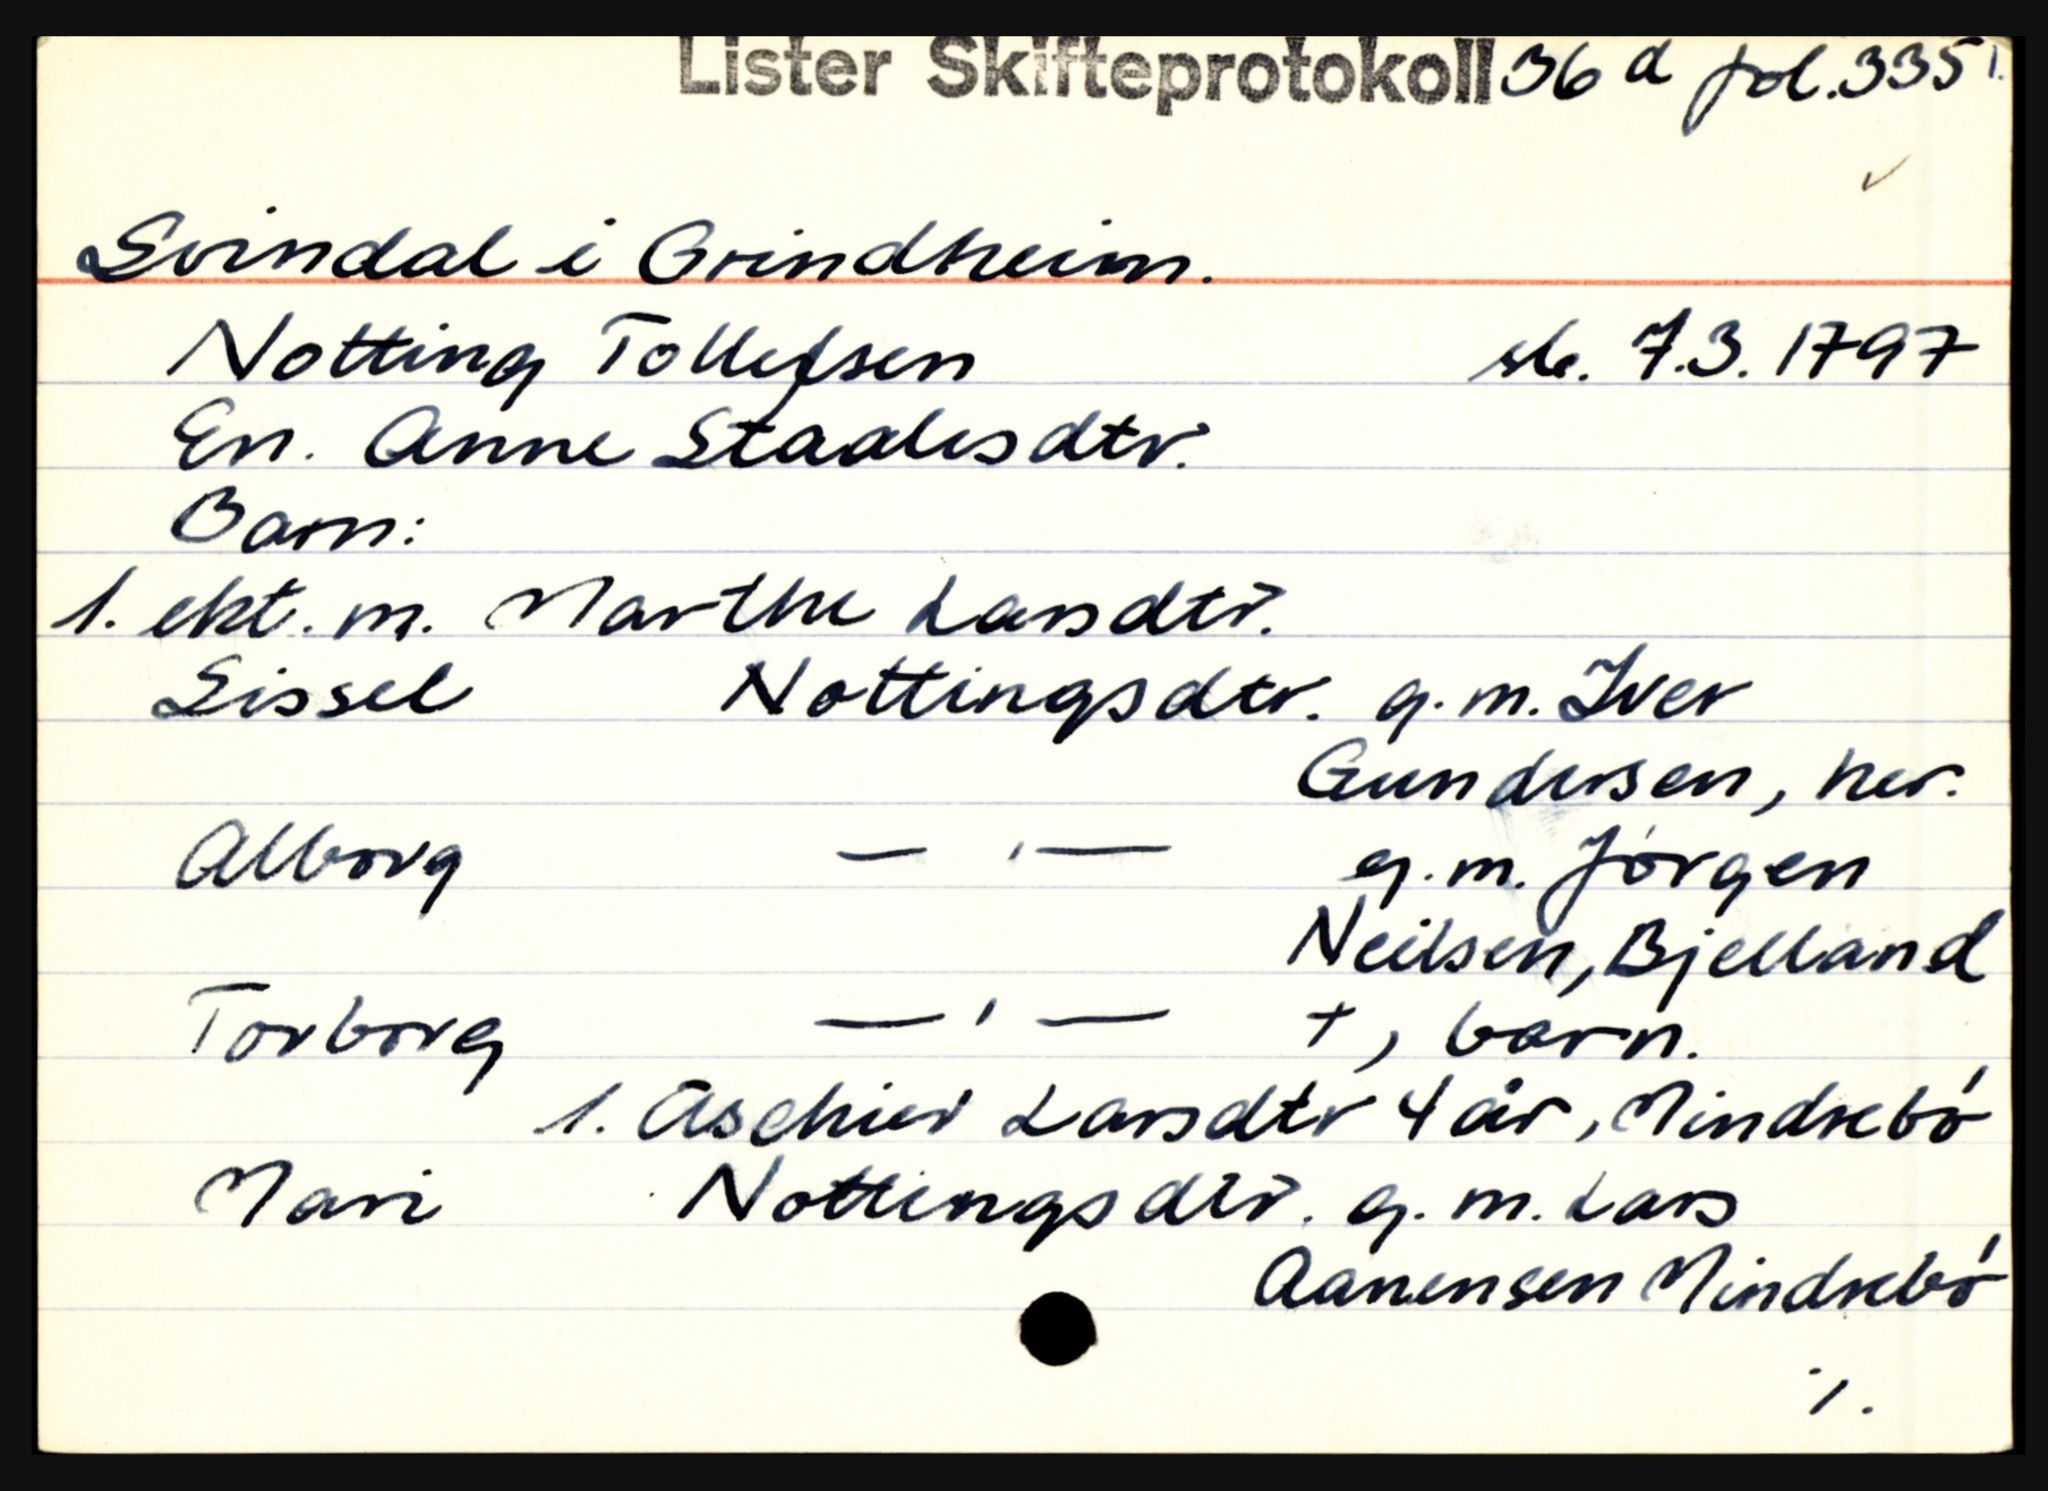 Lister Skifteprotokoll 36 d fol. 335 1.
Svindal i Grindheim.
Notting Tollefsen sk. 7.3.1797
En. Anne Staalesdtr.
Barn:
1. ekt. m. Marthe Larsdtr.
Sissel Nottingsdtr. g.m. Iver
Gundersen, her.
Alborg — ' — g.m. Jørgen
Neilsen, Bjelland
Torborg — ' — +, barn.
1. Aschier Larsdtr 4 år, Mindrebø
Mari Nottingsdtr. g.m. Lars
Aanensen Mindrebø
./.